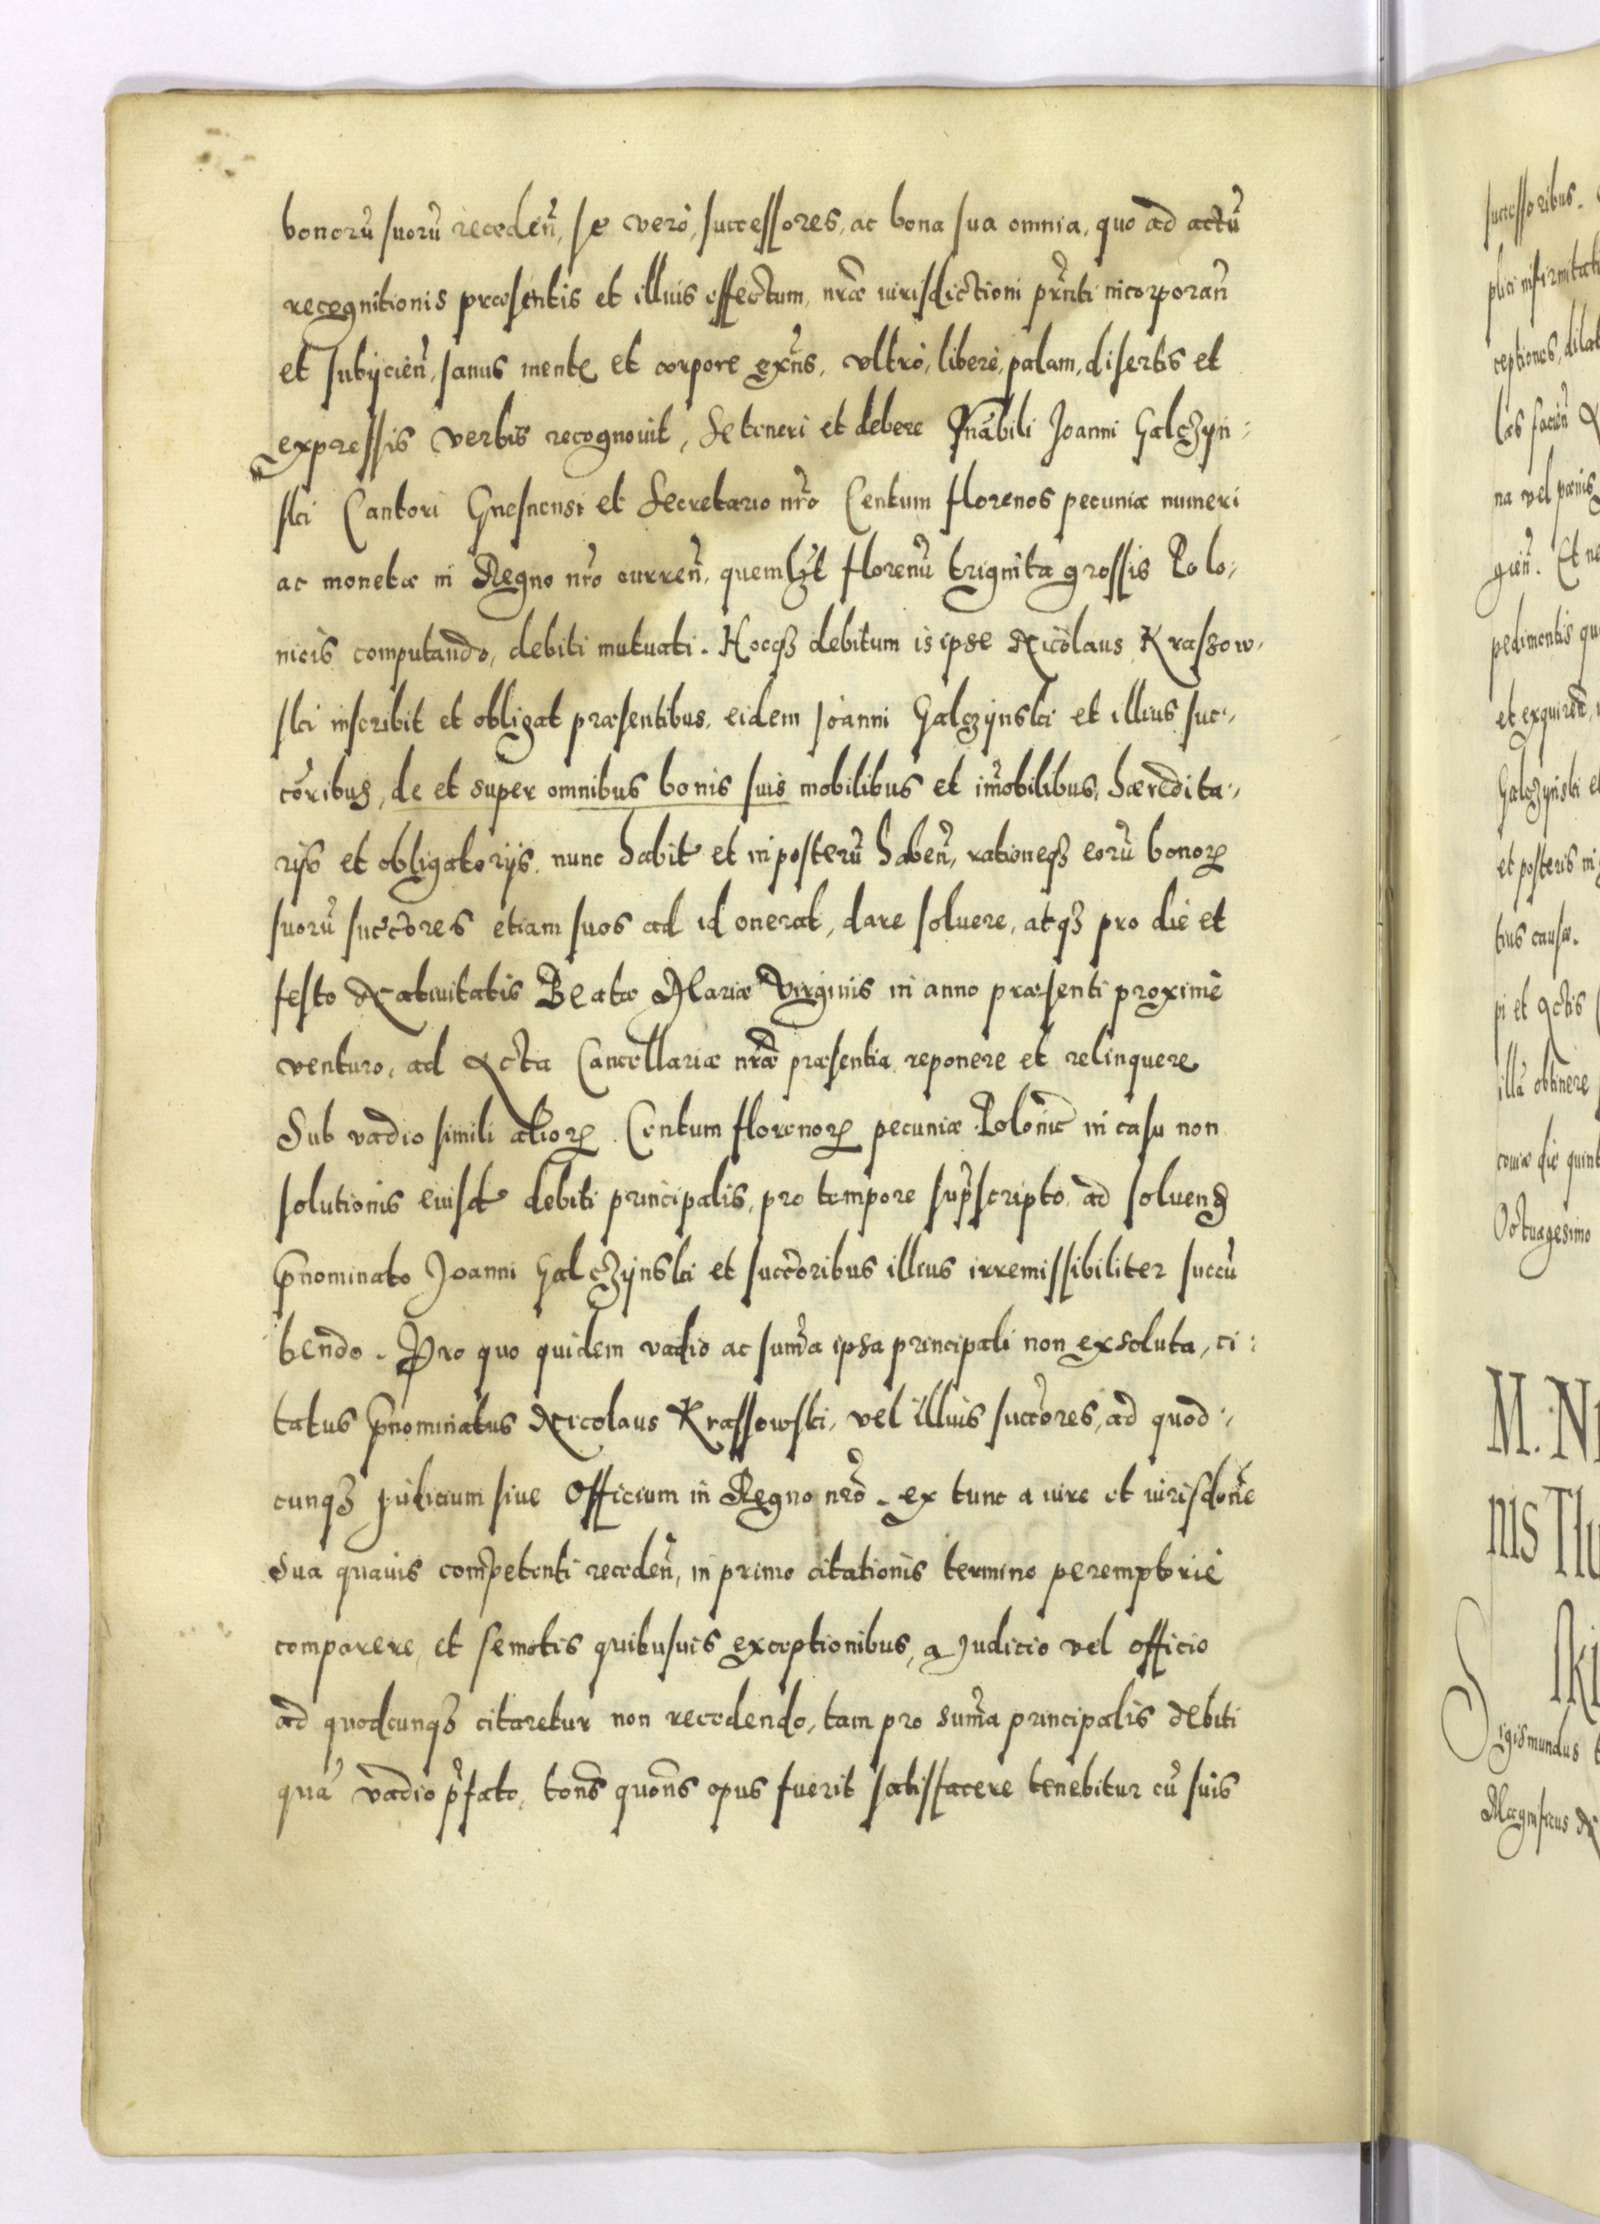 bonorũ suorũ receden̄, se verò, successores, ac bona sua omnia, quo ad actũ
recognitionis præsentis et illius effectum, nr̃æ iurisdictioni pr̃nti incorporan̄
et subijcien̄, sanus mente et corpore exñs, vltrò, liberè, palam, disertis et
expressis verbis recognouit, Se teneri et debere Vñabili Joanni Galczyn:
ski Cantori Gnesnensi et Secretario nr̃o Centum florenos pecuniæ numeri
ac monetæ in Regno nr̃o curren̄, quemlꝫt florenũ triginta grossis Polo:
nicis computando, debiti mutuati. Hocqꝫ debitum is ipse Nicolaus Krassow:
ski inscribit et obligat præsentibus, eidem Joanni Galczynski et illius suc:
cõribus, de et super omnibus bonis suis mobilibus et im̃obilibus, hæredita:
rijs et obligatorijs, nunc habit̃ et in posterũ haben̄, rationeqꝫ eorũ bonorꝝ
suorũ succẽores etiam suos ad id onerat, dare soluere, atqꝫ pro die et
festo Natiuitatis Beatæ Mariæ Virginis in anno præsenti proximè
venturo, ad Acta Cancellariæ nr̃æ præsentia reponere et relinquere
Sub vadio simili aliorꝝ Centum florenorꝝ pecuniæ Polonic̃ in casu non
solutionis eiusd̃ debiti principalis, pro tempore supr̃scripto, ad soluend̃
p̃nominato Joanni Galczynski et succẽoribus illius irremissibiliter succũ
bendo. Pro quo quidem vadio ac sum̃a ipsa principali non exsoluta, ci:
tatus p̃nominatus Nicolaus Krassowski, vel illius succẽores, ad quod:
cunqꝫ Judicium siue Officium in Regno nr̃o, ex tunc a iure et iurisdõne
sua quauis competenti receden̄, in primo citationis termino peremptoriè
comparere, et semotis quibusuis exceptionibus, a Judicio vel officio
ad quodcunqꝫ citaretur non recedendo, tam pro sum̃a principalis debiti
quã vadio p̃fato, tonẽs quonẽs opus fuerit satisfacere tenebitur cũ suis
successoribus.
ceptiones,
na vel pœnis
pedimentis
Galczynski et
et posteris
tius causæ.
pi et Actis
illã obtinere
Octuagesimo
M. NI
nis
ski
Sigismundus
Magnificus